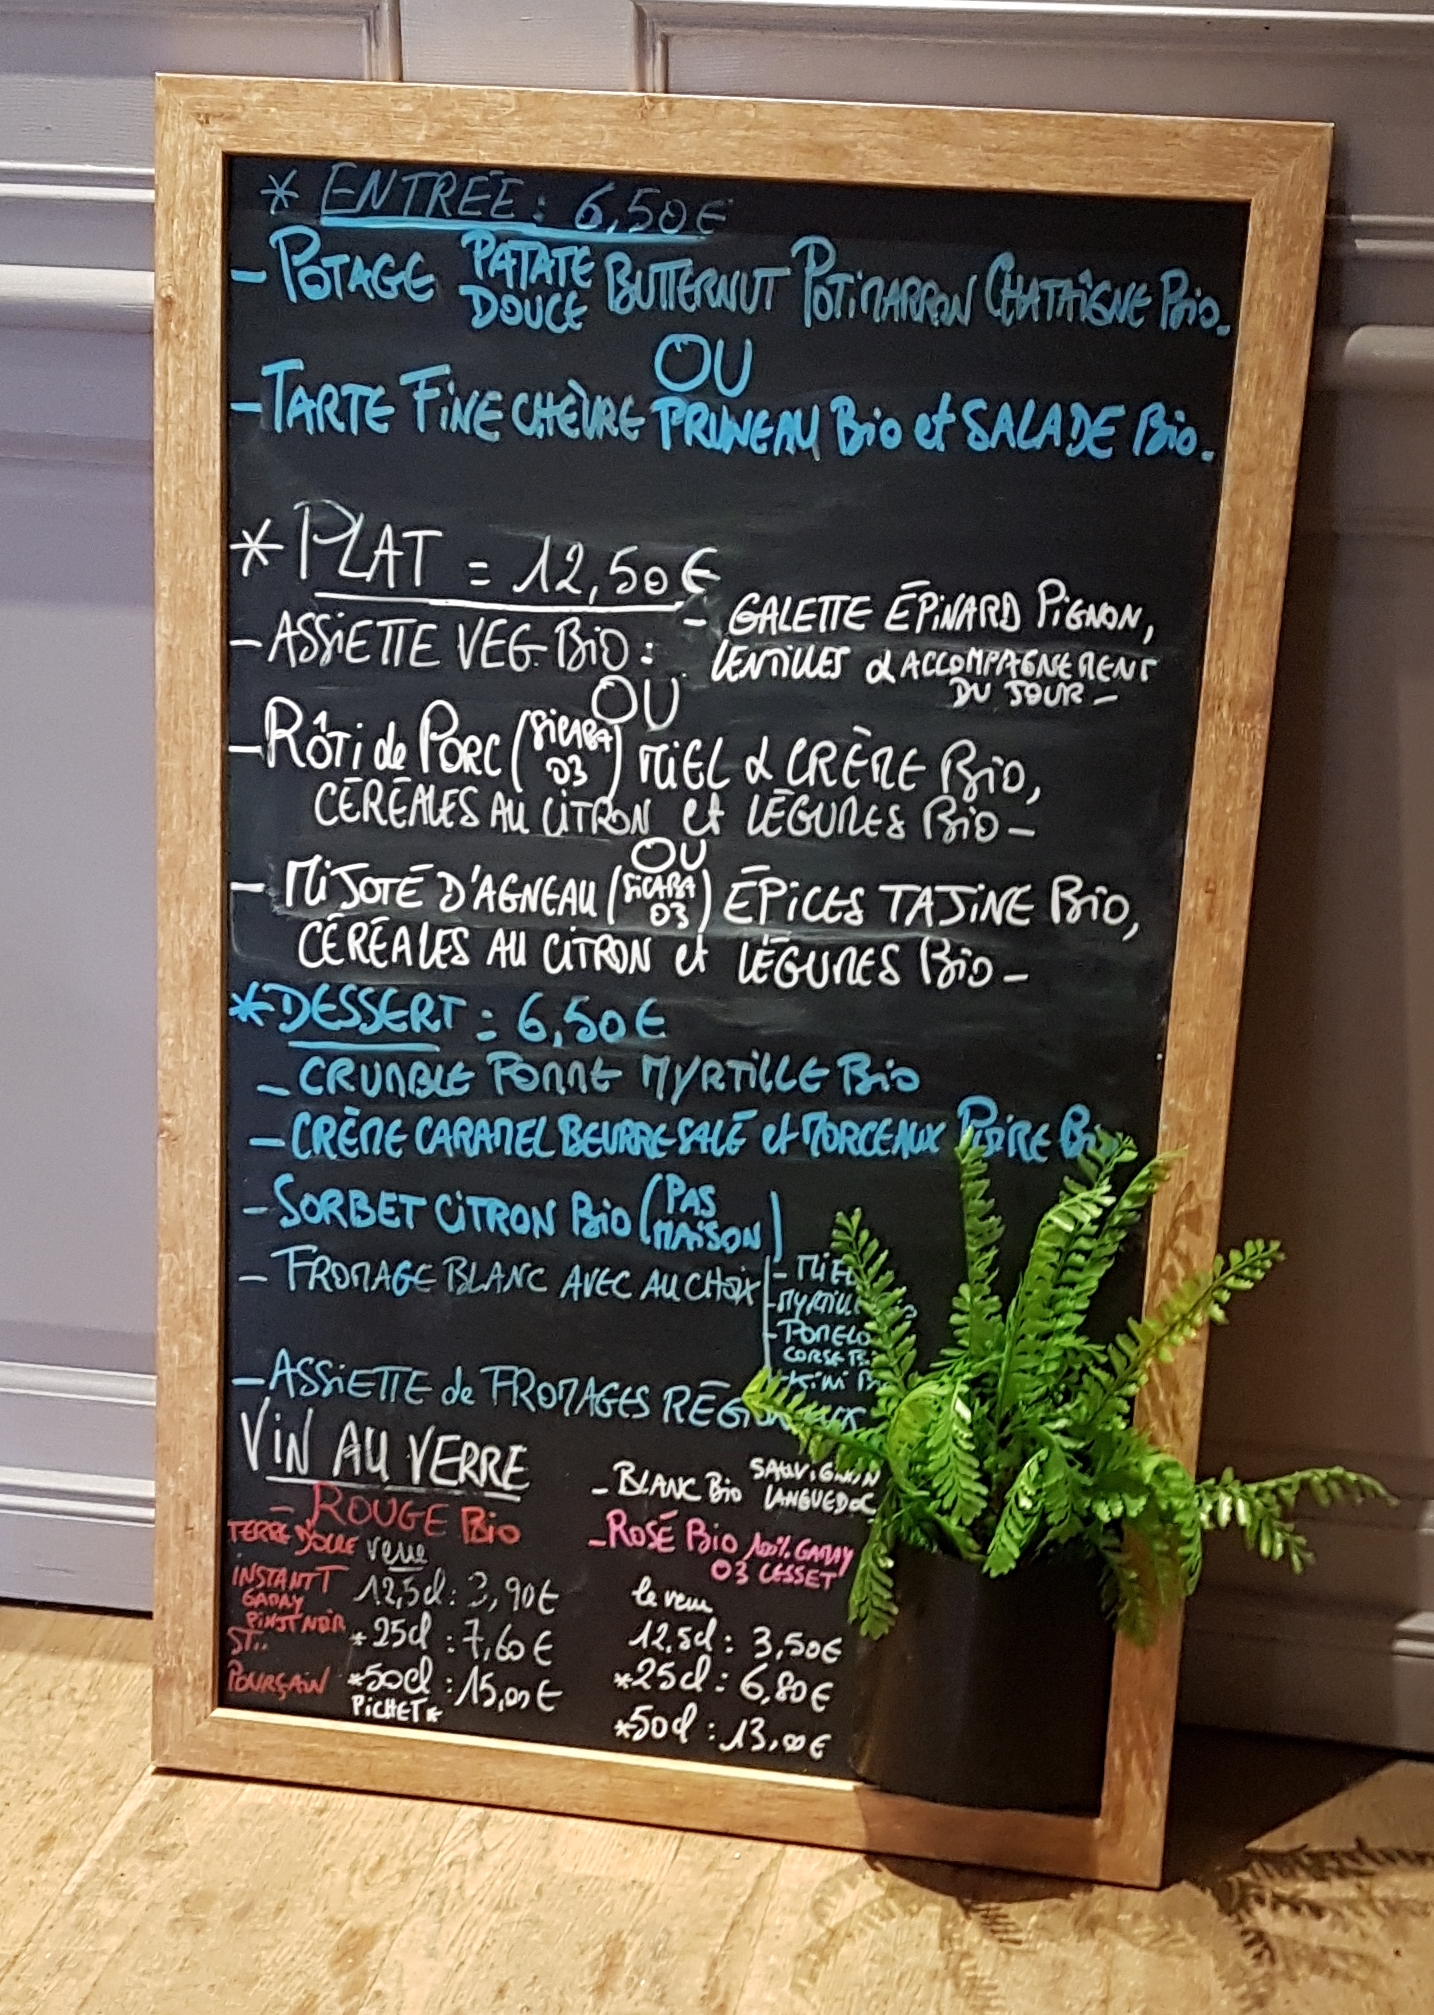 * ENTRÉE : 6,50€
- POTAGE PATATE DOUCE BUTTERNUT POTIMARRON CHATAÎGNE Bio.
OU
- TARTE FINE CHÈVRE PRUNEAU Bio et SALADE Bio.
* PLAT = 12,50€
- ASSIETTE VEG BiO : - GALETTE ÉPINARD PIGNON,
LENTILLES & ACCOMPAGNEMENT
DU JOUR -
OU
- RÔTI de PORC (SICABA 03) MIEL & CRÈME BiO,
CÉRÉALES AU CITRON et LÉGUMES BiO -
OU
- MIJOTÉ D'AGNEAU (SICABA 03) ÉPICES TAJINE BiO,
CÉRÉALES AU CITRON et LÉGUMES BiO -
* DESSERT : 6,50€
- CRUMBLE POMME MYRTILLE Bio
- CRÈME CARAMEL BEURRE SALÉ et MORCEAUX POIRE
- SORBET CITRON Bio (PAS MAISON)
- FROMAGE BLANC AVEC AU CHOIX
- MIEL
- POMELO
CORSE
- KIWI
- ASSIETTE de FROMAGES
VIN AU VERRE
- ROUGE Bio
TERRE D'OCRE
INSTANT T
GAMAY
PINOT NOIR
ST..
POURÇAIN
verre
12,5cl : 3,90€
*25cl : 7,60€
*50cl : 15,00€
PICHET*
- BLANC Bio SAUVIGNON
LANGUEDOC
- ROSÉ Bio 100% GAMAY
03 CESSET
le verre
12.5cl : 3,50€
*25cl : 6,80€
*50cl : 13,00€